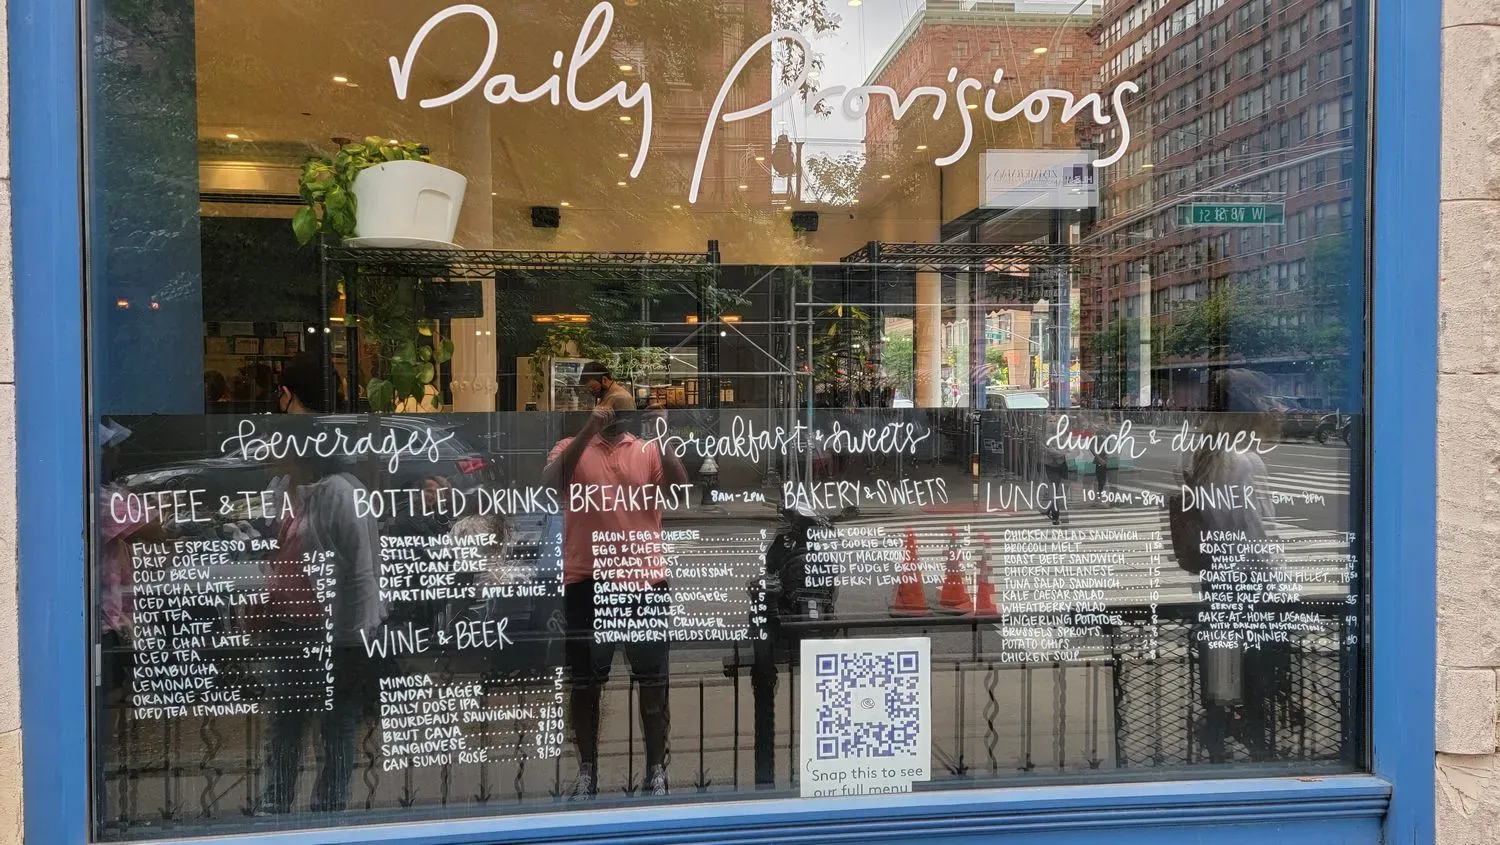 Daily Provisions
W 78 St
beverages
COFFEE & TEA
FULL ESPRESSO BAR
DRIP COFFEE 3/3⁵⁰
COLD BREW 4⁵⁰/5
MATCHA LATTE 5⁵⁰
ICED MATCHA LATTE 5⁵⁰
HOT TEA 4
CHAI LATTE 6
ICED CHAI LATTE 6
ICED TEA 3⁵⁰/4
KOMBUCHA 6
LEMONADE 6
ORANGE JUICE 5
ICED TEA LEMONADE 5
BOTTLED DRINKS
SPARKLING WATER 3
STILL WATER 3
MEXICAN COKE 4
DIET COKE 4
MARTINELLI'S APPLE JUICE 4
WINE & BEER
MIMOSA 7
SUNDAY LAGER 5
DAILY DOSE IPA 5
BOURDEAUX SAUVIGNON 8/30
BRUT CAVA 8/30
SANGIOVESE 8/30
CAN SUMOI ROSE 8/30
breakfast & sweets
BREAKFAST 8AM-2PM
BACON, EGG & CHEESE 8
EGG & CHEESE
AVOCADO TOAST 9
EVERYTHING CROISSANT 5
GRANOLA 9
CHEESY EGG GOUGIERE 5
MAPLE CRULLER 4⁵⁰
CINNAMON CRULLER 4⁵⁰
STRAWBERRY FIELDS CRULLER 6
BAKERY & SWEETS
CHUNK COOKIE 4
PB & J COOKIE (GF) 5
COCONUT MACAROONS 3/10
SALTED FUDGE BROWNIE
BLUEBERRY LEMON LOAF 4
Snap this to see
our full menu
lunch & dinner
LUNCH 10:30AM-8PM
CHICKEN SALAD SANDWICH 12
BROCCOLI MELT 11⁵⁰
ROAST BEEF SANDWICH 14
CHICKEN MILANESE 15
TUNA SALAD SANDWICH 12
KALE CAESAR SALAD 10
WHEATBERRY SALAD 8
FINGERLING POTATOES 8
BRUSSELS SPROUTS 8
POTATO CHIPS
CHICKEN SOUP 8
DINNER 5PM-8PM
LASAGNA 17
ROAST CHICKEN
WHOLE
HALF 14
ROASTED SALMON FILLET 18⁵⁰
WITH CHOICE OF SALAD
LARGE KALE CAESAR 35
SERVES 4
BAKE-AT-HOME LASAGNA 49
WITH BAKING INSTRUCTIONS
CHICKEN DINNER
SERVES 2-4